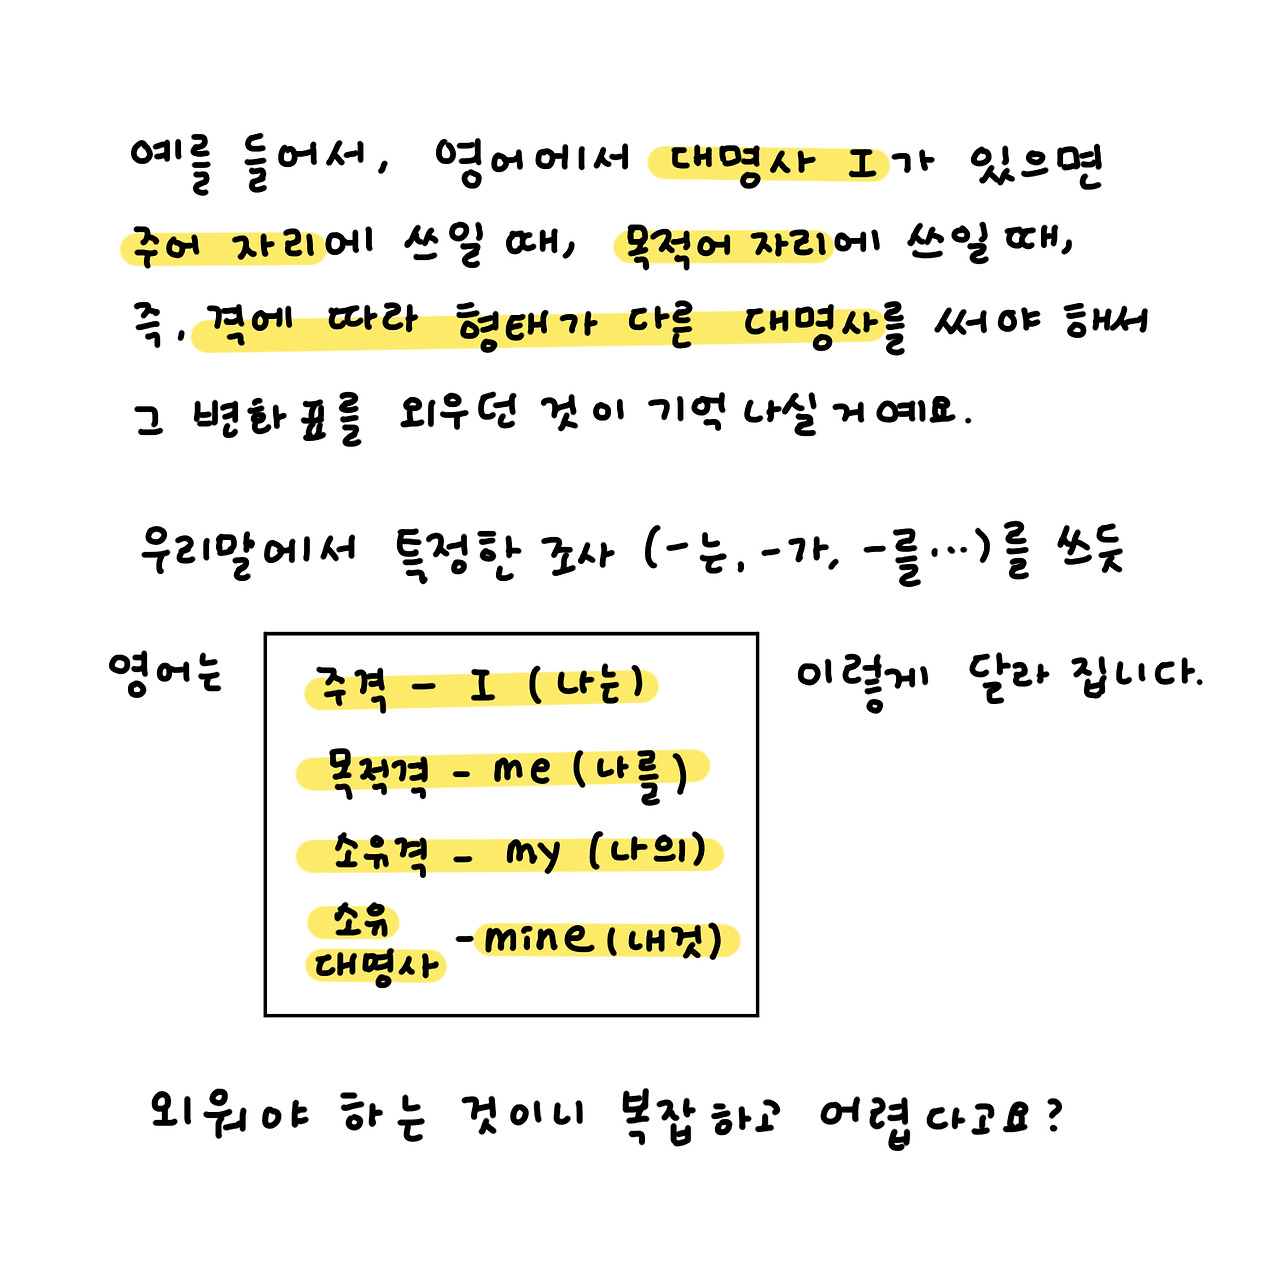 예를 들어서, 영어에서 대명사 I가 있으면
주어 자리에 쓰일 때, 목적어 자리에 쓰일 때,
즉, 격에 따라 형태가 다른 대명사를 써야 해서
그 변화표를 외우던 것이 기억 나실 거예요.
우리말에서 특정한 조사 (-는, -가, -를...)를 쓰듯
영어는
주격 - I (나는)
목적격 - me (나를)
소유격 - my (나의)
소유
대명사 - mine (내것)
이렇게 달라 집니다.
외워야 하는 것이니 복잡하고 어렵다고요?